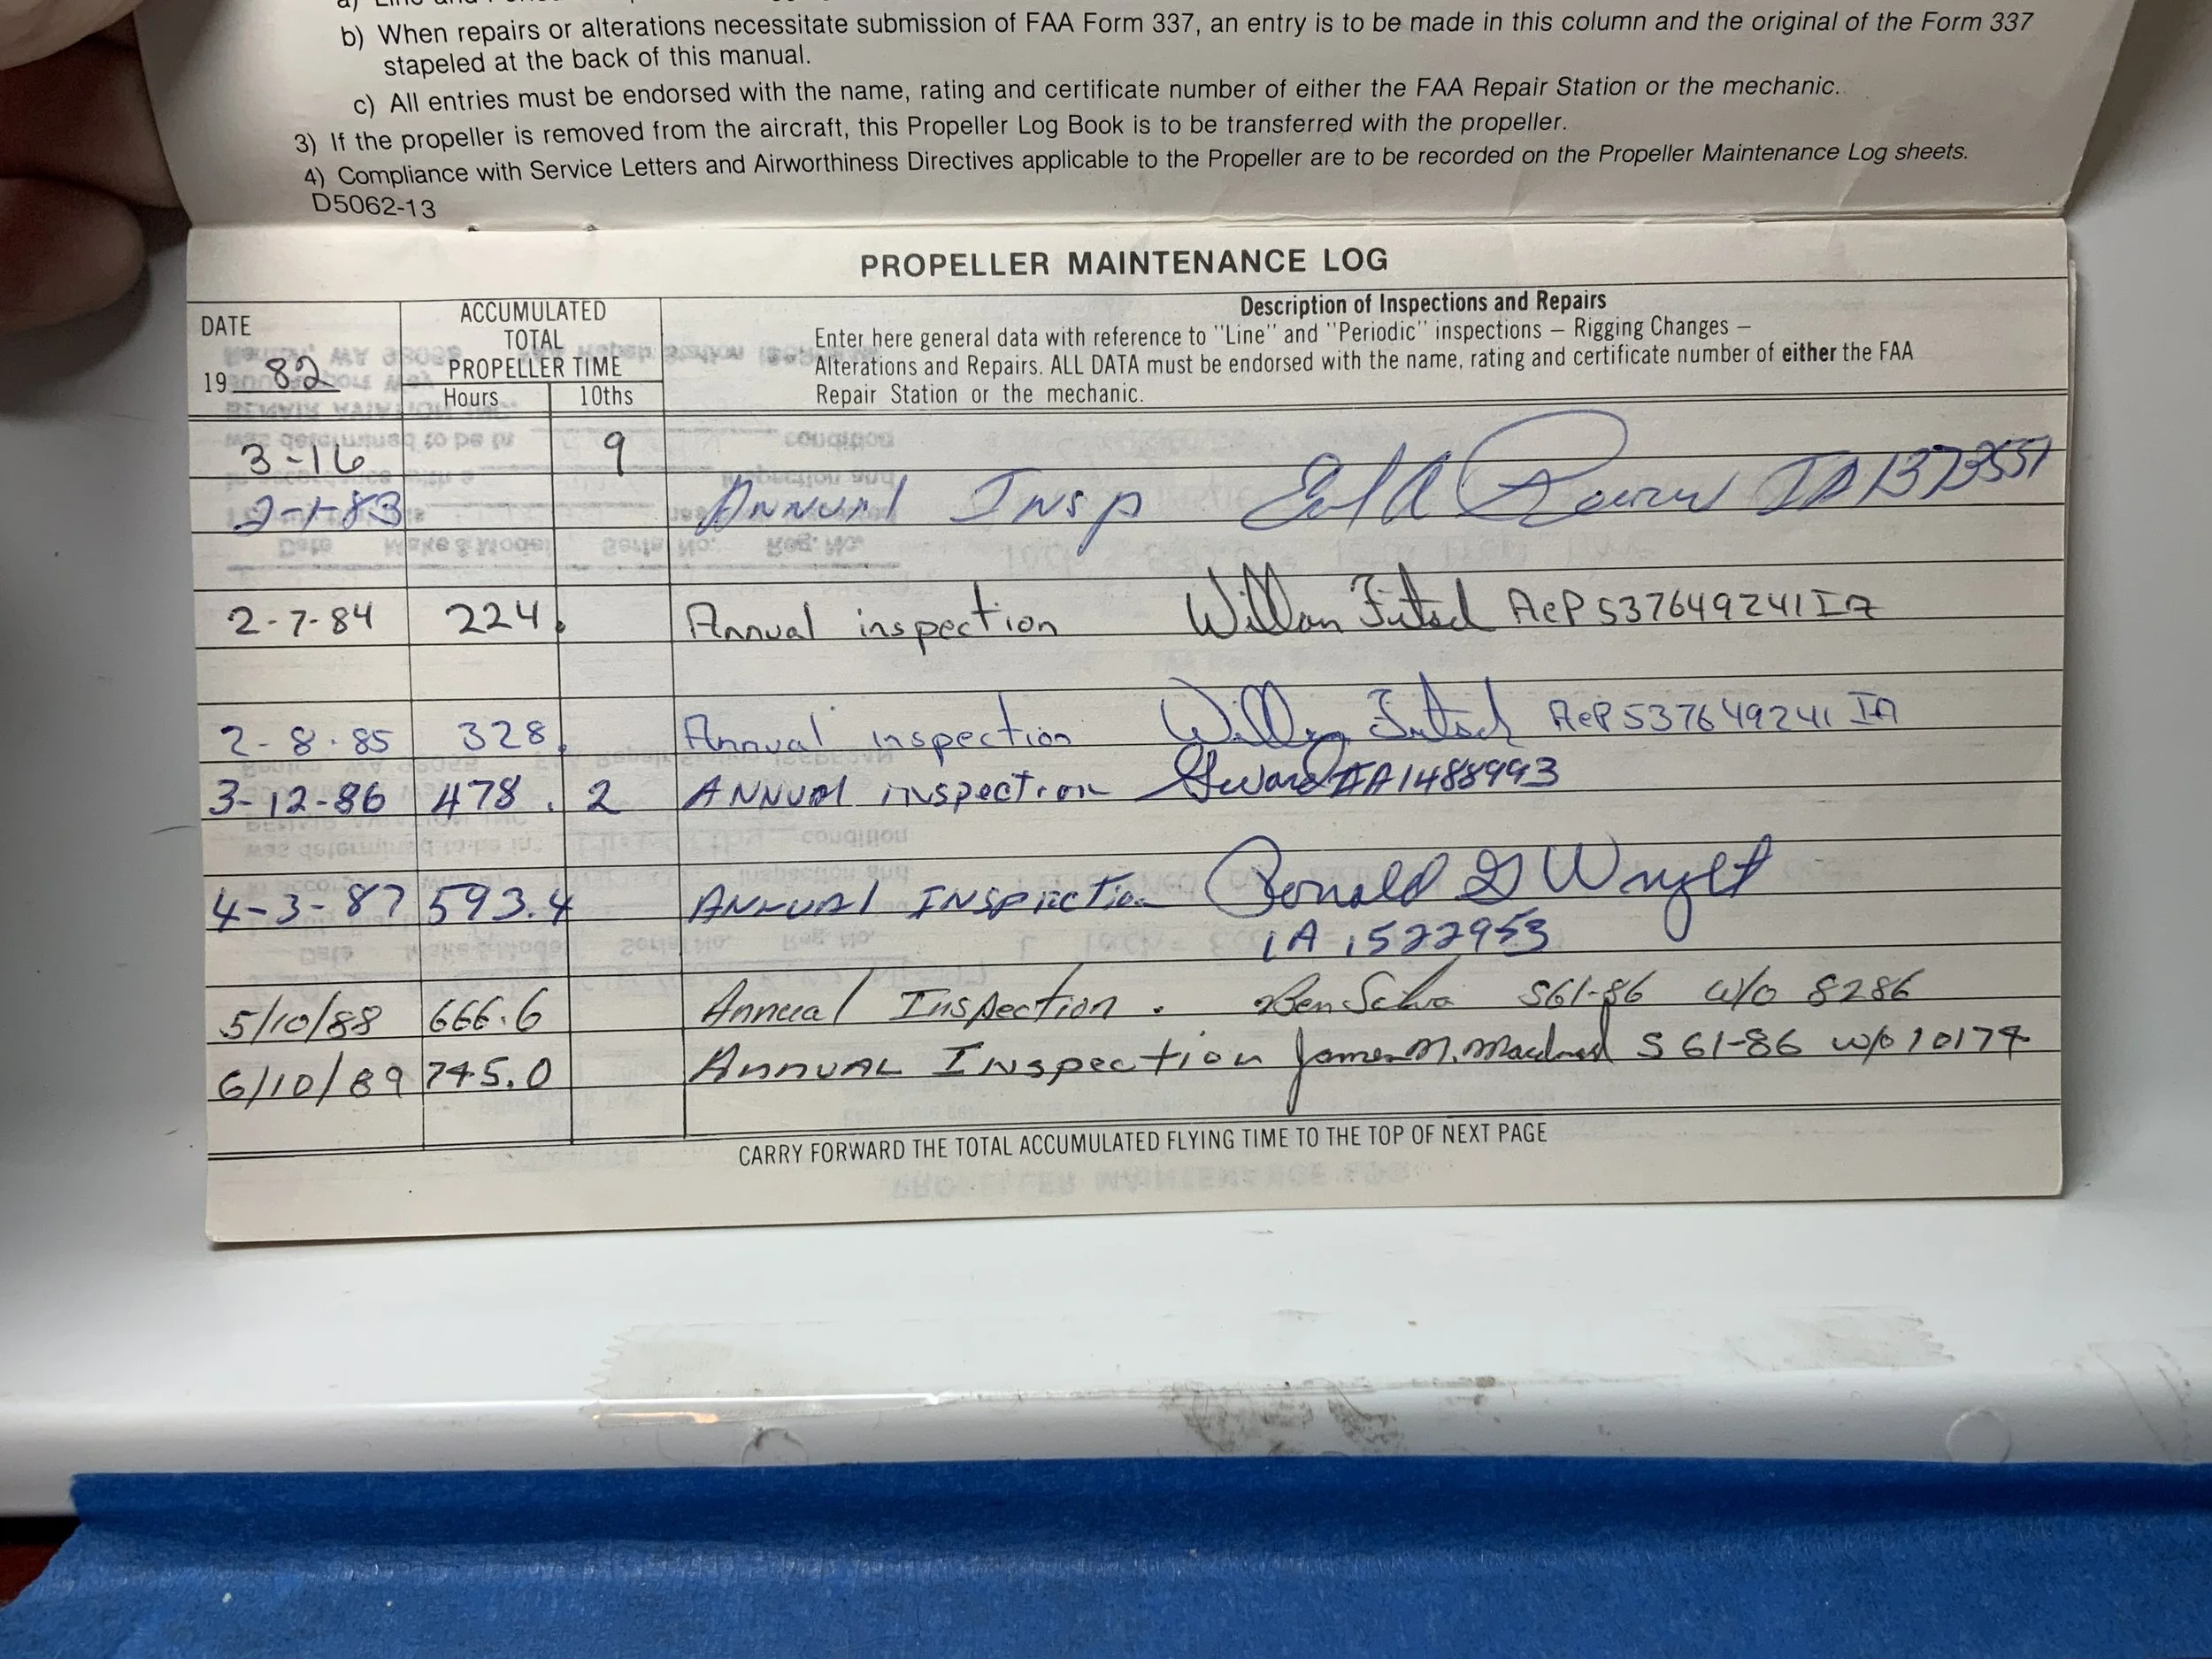 b) When repairs or alterations necessitate submission of FAA Form 337, an entry is to be made in this column and the original of the Form 337
stapeled at the back of this manual.
c) All entries must be endorsed with the name, rating and certificate number of either the FAA Repair Station or the mechanic.
3) If the propeller is removed from the aircraft, this Propeller Log Book is to be transferred with the propeller.
4) Compliance with Service Letters and Airworthiness Directives applicable to the Propeller are to be recorded on the Propeller Maintenance Log sheets.
D5062-13
PROPELLER MAINTENANCE LOG
DATE
19 82
ACCUMULATED
TOTAL
PROPELLER TIME
Hours 10ths
Description of Inspections and Repairs
Enter here general data with reference to "Line" and "Periodic" inspections — Rigging Changes —
Alterations and Repairs. ALL DATA must be endorsed with the name, rating and certificate number of either the FAA
Repair Station or the mechanic.
3-16 9
2-1-83 Annual Insp IA 1373551
2-7-84 224. Annual inspection AeP 537649241 IA
2-8-85 328. Annual inspection AeP 537649241 IA
3-12-86 478.2 Annual inspection IA 1488993
4-3-87 593.4 Annual Inspection Ronald G Wright
IA 1522953
5/10/88 666.6 Annual Inspection. Ben S61-86 w/o 8286
6/10/89 745.0 Annual Inspection James M. S61-86 w/o 10174
CARRY FORWARD THE TOTAL ACCUMULATED FLYING TIME TO THE TOP OF NEXT PAGE